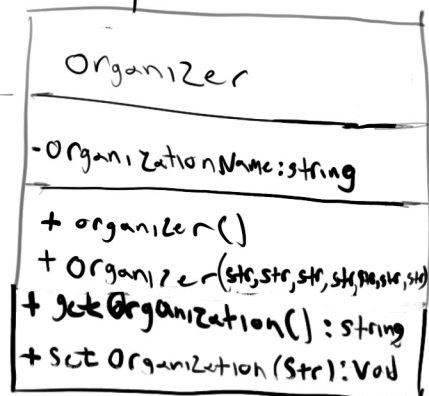 Organizer
-OrganizationName:string
+ organizer()
+ Organizer(str,str,str,str,str,str,str)
+ getOrganization() : string
+ Set Organization(Str): Void